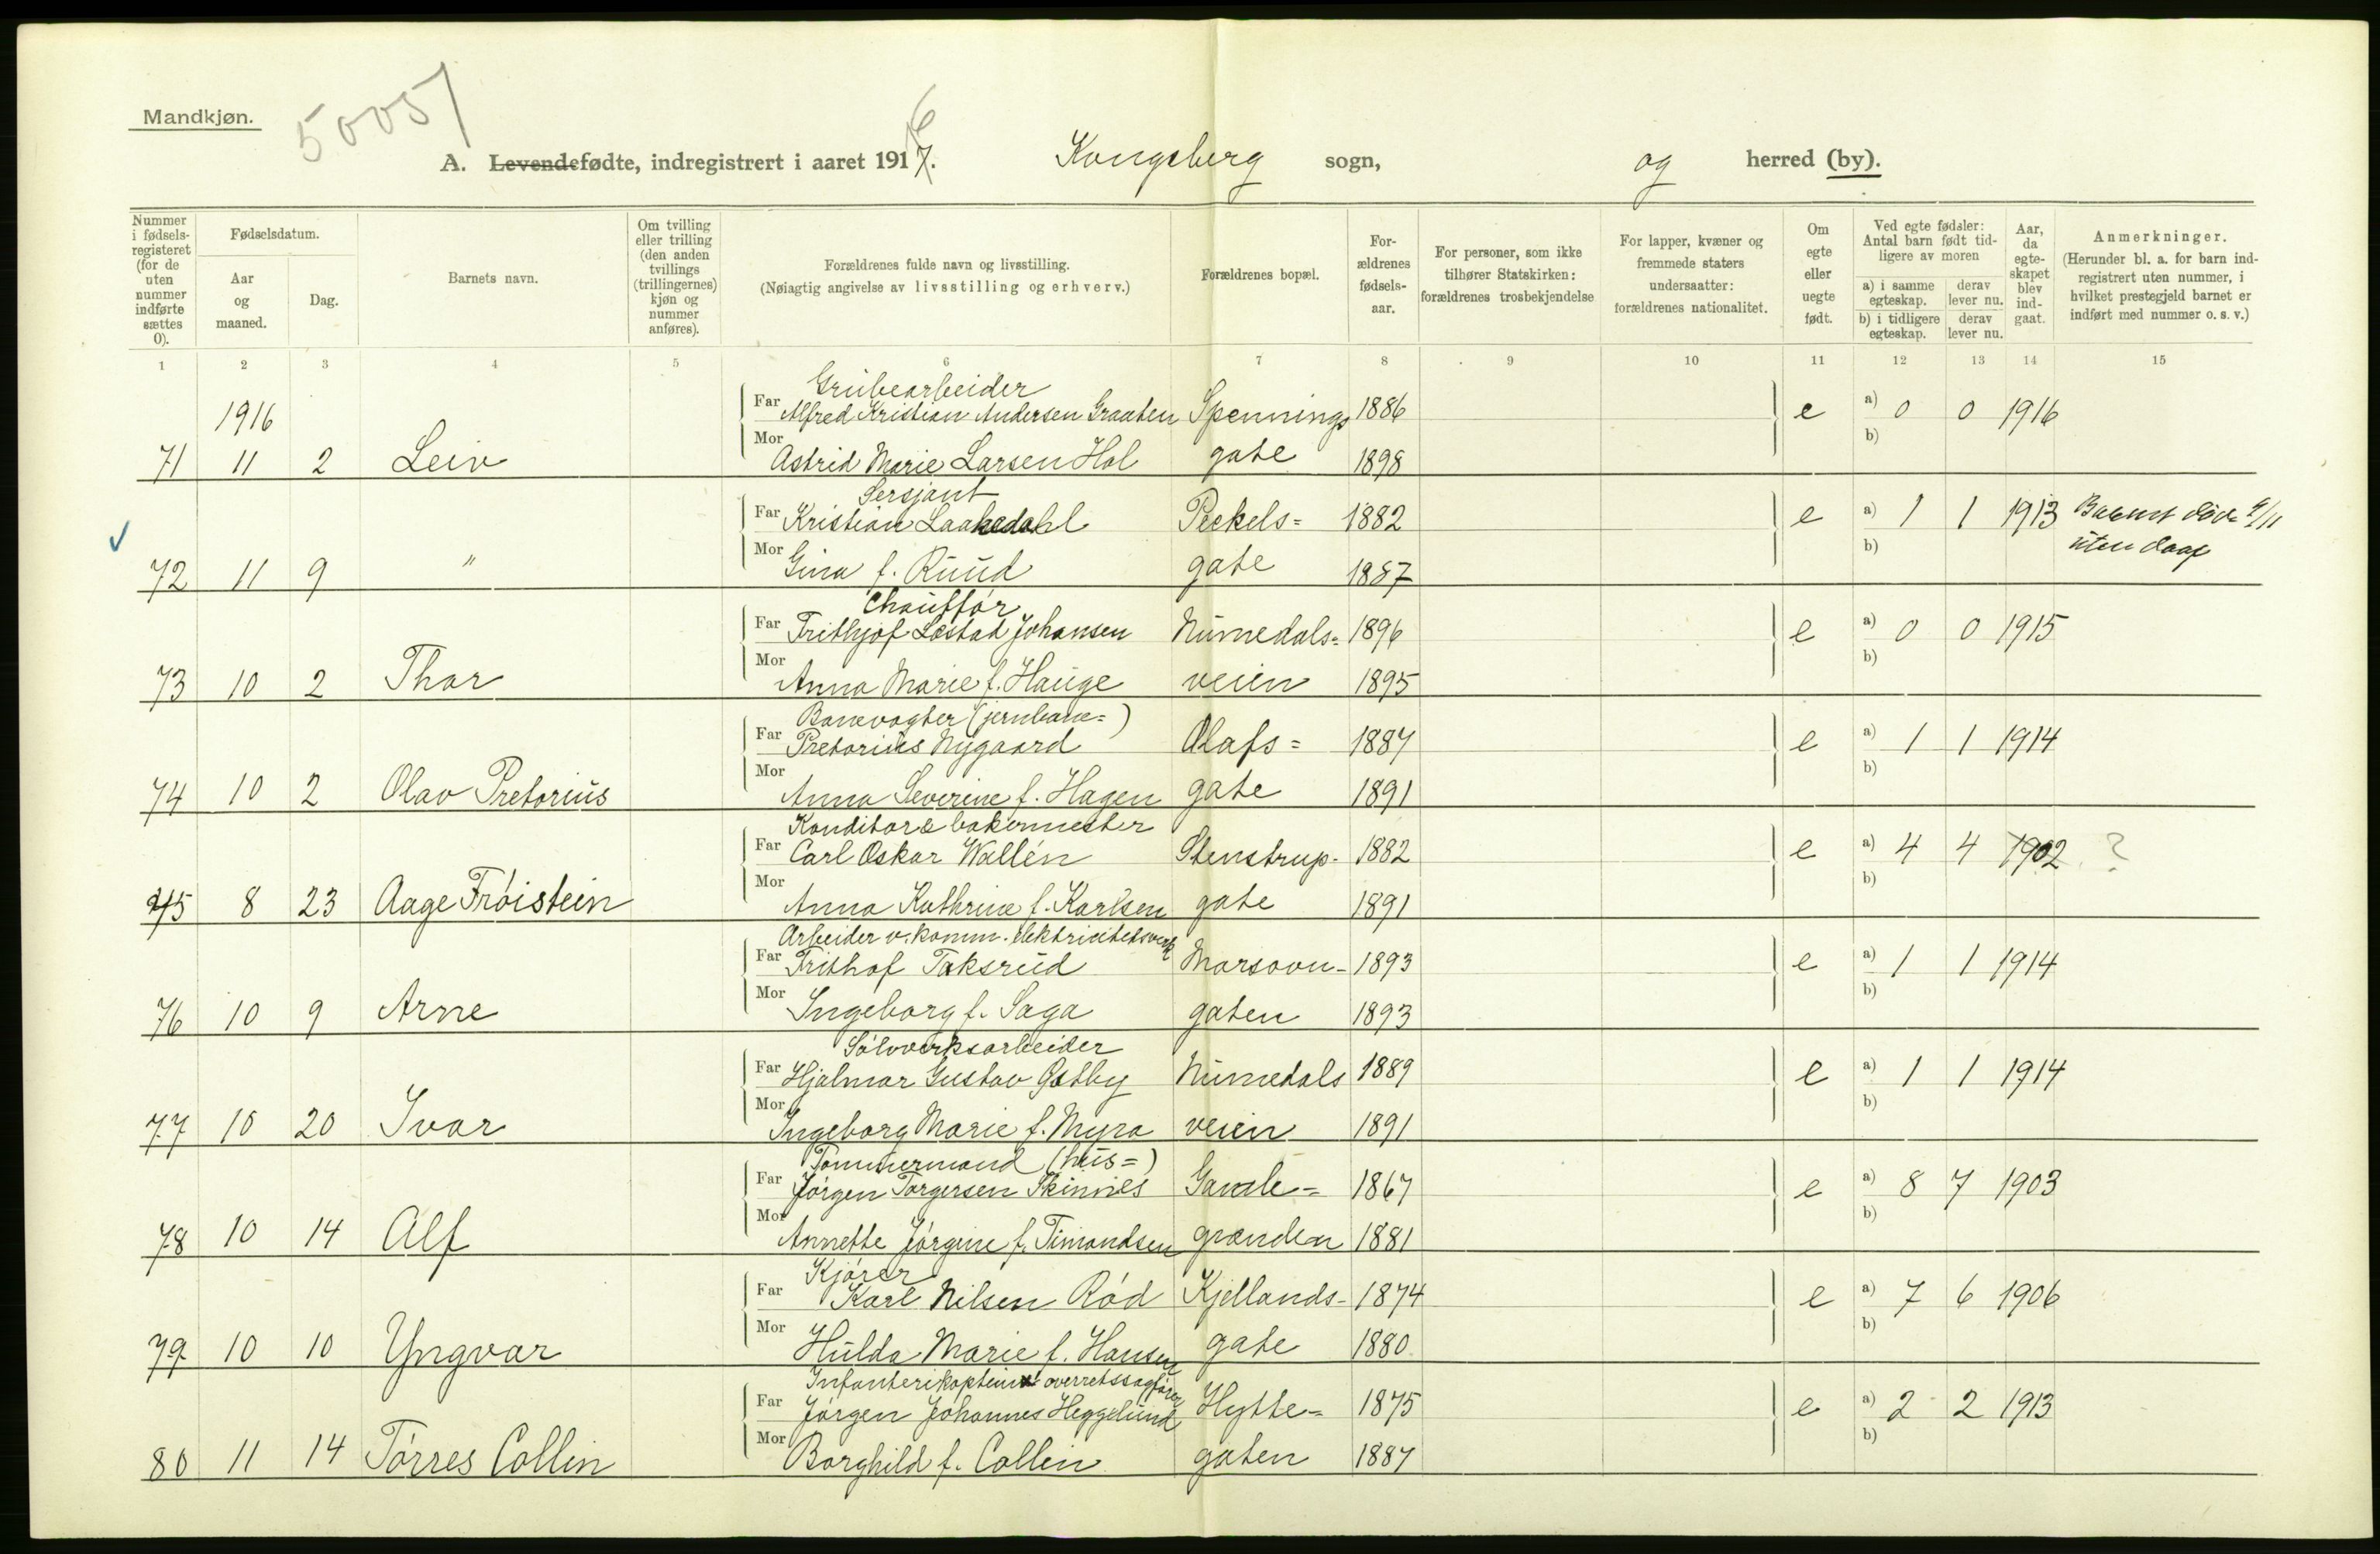 Mandkjøn.
50057
A. Levendefødte, indregistrert i aaret 1917. 6 Kongsberg sogn, og herred (by).
Nummer i fødsels-registeret (for de uten nummer indførte sættes 0).
Fødselsdatum.
Aar og maaned.
Dag.
Barnets navn.
Om tvilling eller trilling (den anden tvillings (trillingernes) kjøn og nummer anføres).
Forældrenes fulde navn og livsstilling.
(Nøiagtig angivelse av livsstilling og erhverv.)
Forældrenes bopæl.
For-ældrenes fødsels-aar.
For personer, som ikke tilhører Statskirken: forældrenes trosbekjendelse
For lapper, kvæner og fremmede staters undersaatter: forældrenes nationalitet.
Om egte eller uegte født.
Ved egte fødsler: Antal barn født tid-ligere av moren
a) i samme egteskap. derav lever nu.
b) i tidligere egteskap. derav lever nu.
Aar, da egte-skapet blev ind-gaat.
Anmerkninger.
(Herunder bl. a. for barn ind-registrert uten nummer, i hvilket prestegjeld barnet er indført med nummer o. s. v.)
1 2 3 4 5 6 7 8 9 10 11 12 13 14 15
Grubearbeider
1916 Far Alfred Kristian Andersen Graaten Spennings 1886 e a) 0 0 1916
b)
71 11 2 Leiv Mor Astrid Marie Larsen Hol gate 1898
Sersjant
Far Kristian Laagedahl Peckels= 1882 e a) 1 1 1913 Barnet døde 9/11
b) uten daap
72 11 9 " Mor Gina f. Ruud gate 1887
Chauffør
Far Frithjof Løstad Johansen Numedals= 1896 e a) 0 0 1915
b)
73 10 2 Thor Mor Anna Marie f. Hauge veien 1895
Banevogter (jernbane=)
Far Pretorius Nygaard Olafs= 1887 e a) 1 1 1914
b)
74 10 2 Olav Pretorius Mor Anna Severine f. Hagen gate 1891
Konditor & bakermester
Far Carl Oskar Wallén Stenstrup- 1882 e a) 4 4 1902 ?
b)
75 8 23 Aage Frøistein Mor Anna Kathrine f. Karlsen gate 1891
Arbeider v. komm. elektricitetsverk
Far Frithof Taksrud 1893 e a) 1 1 1914
b)
76 10 9 Arne Mor Ingeborg f. Saga gaten 1893
Sølvverksarbeider
Far Hjalmar Gustav Østby Numedals 1889 e a) 1 1 1914
b)
77 10 20 Ivar Mor Ingeborg Marie f. Myra veien 1891
Tømmermand (hus=)
Far Jørgen Torgersen Skinnes Gamle= 1867 e a) 8 7 1903
b)
78 10 14 Alf Mor Annette Jørgine f. Timandsen grænden 1881
Kjører
Far Karl Nilsen Rød Kjellands- 1874 e a) 7 6 1906
b)
79 10 10 Yngvar Mor Hulda Marie f. Hansen gate 1880
Infanterikaptein overretssagfører
Far Jørgen Johannes Heggelund Hytte= 1875 e a) 2 2 1913
b)
80 11 14 Tørres Collin Mor Borghild f. Collin gaten 1887